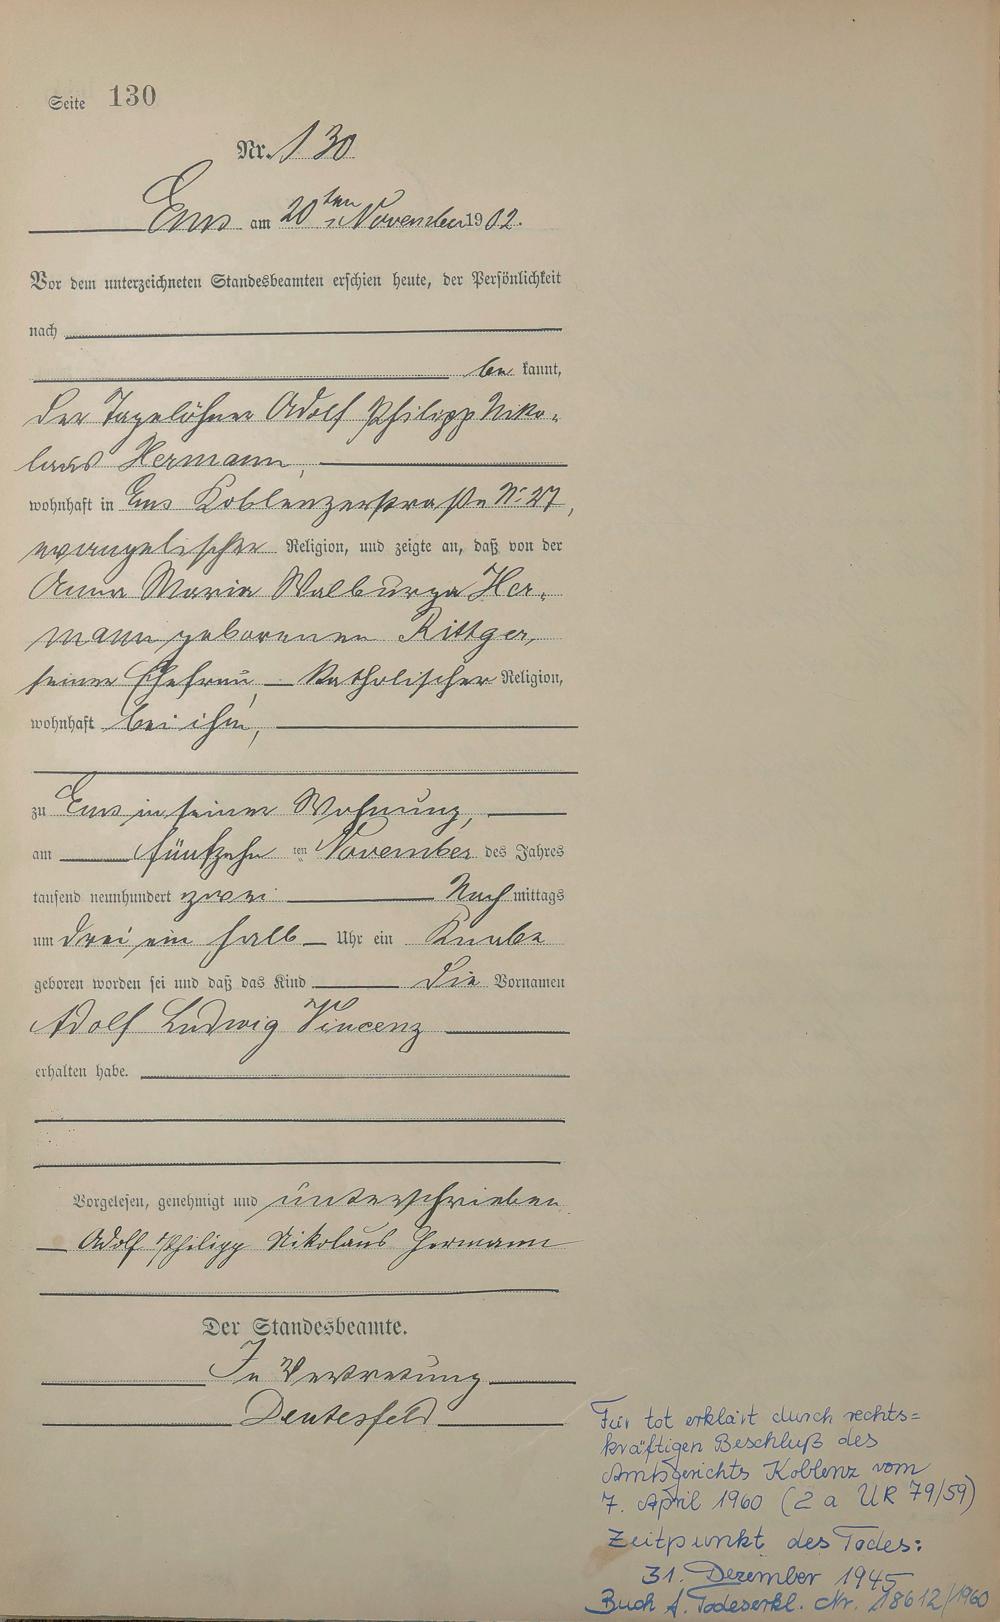 Seite 130
Nr. 130
Ems am 20ten November 1902.
Vor dem unterzeichneten Standesbeamten erschien heute, der Persönlichkeit
nach
be kannt,
der Tagelöhner Adolf Philipp Niko-
laus Hermann,
wohnhaft in Ems Koblenzerstraße No 27,
evangelischer Religion, und zeigte an, daß von der
Anna Maria Walburga Her-
mann geborenen Rittger,
seiner Ehefrau, katholischer Religion,
wohnhaft bei ihm,
zu Ems in seiner Wohnung,
am fünfzehn ten November des Jahres
tausend neunhundert zwei Nach mittags
um drei ein halb Uhr ein Knabe
geboren worden sei und daß das Kind die Vornamen
Adolf Ludwig Vincenz
erhalten habe.
Vorgelesen, genehmigt und unterschrieben
Adolf Philipp Nikolaus Hermann
Der Standesbeamte.
In Vertretung
Deutesfeld
Für tot erklärt durch rechts=
kräftigen Beschluß des
Amtsgerichts Koblenz vom
7. April 1960 (2 a UR 79/59)
Zeitpunkt des Todes:
31. Dezember 1945
Buch f. Todeserkl. Nr. 18612/1960